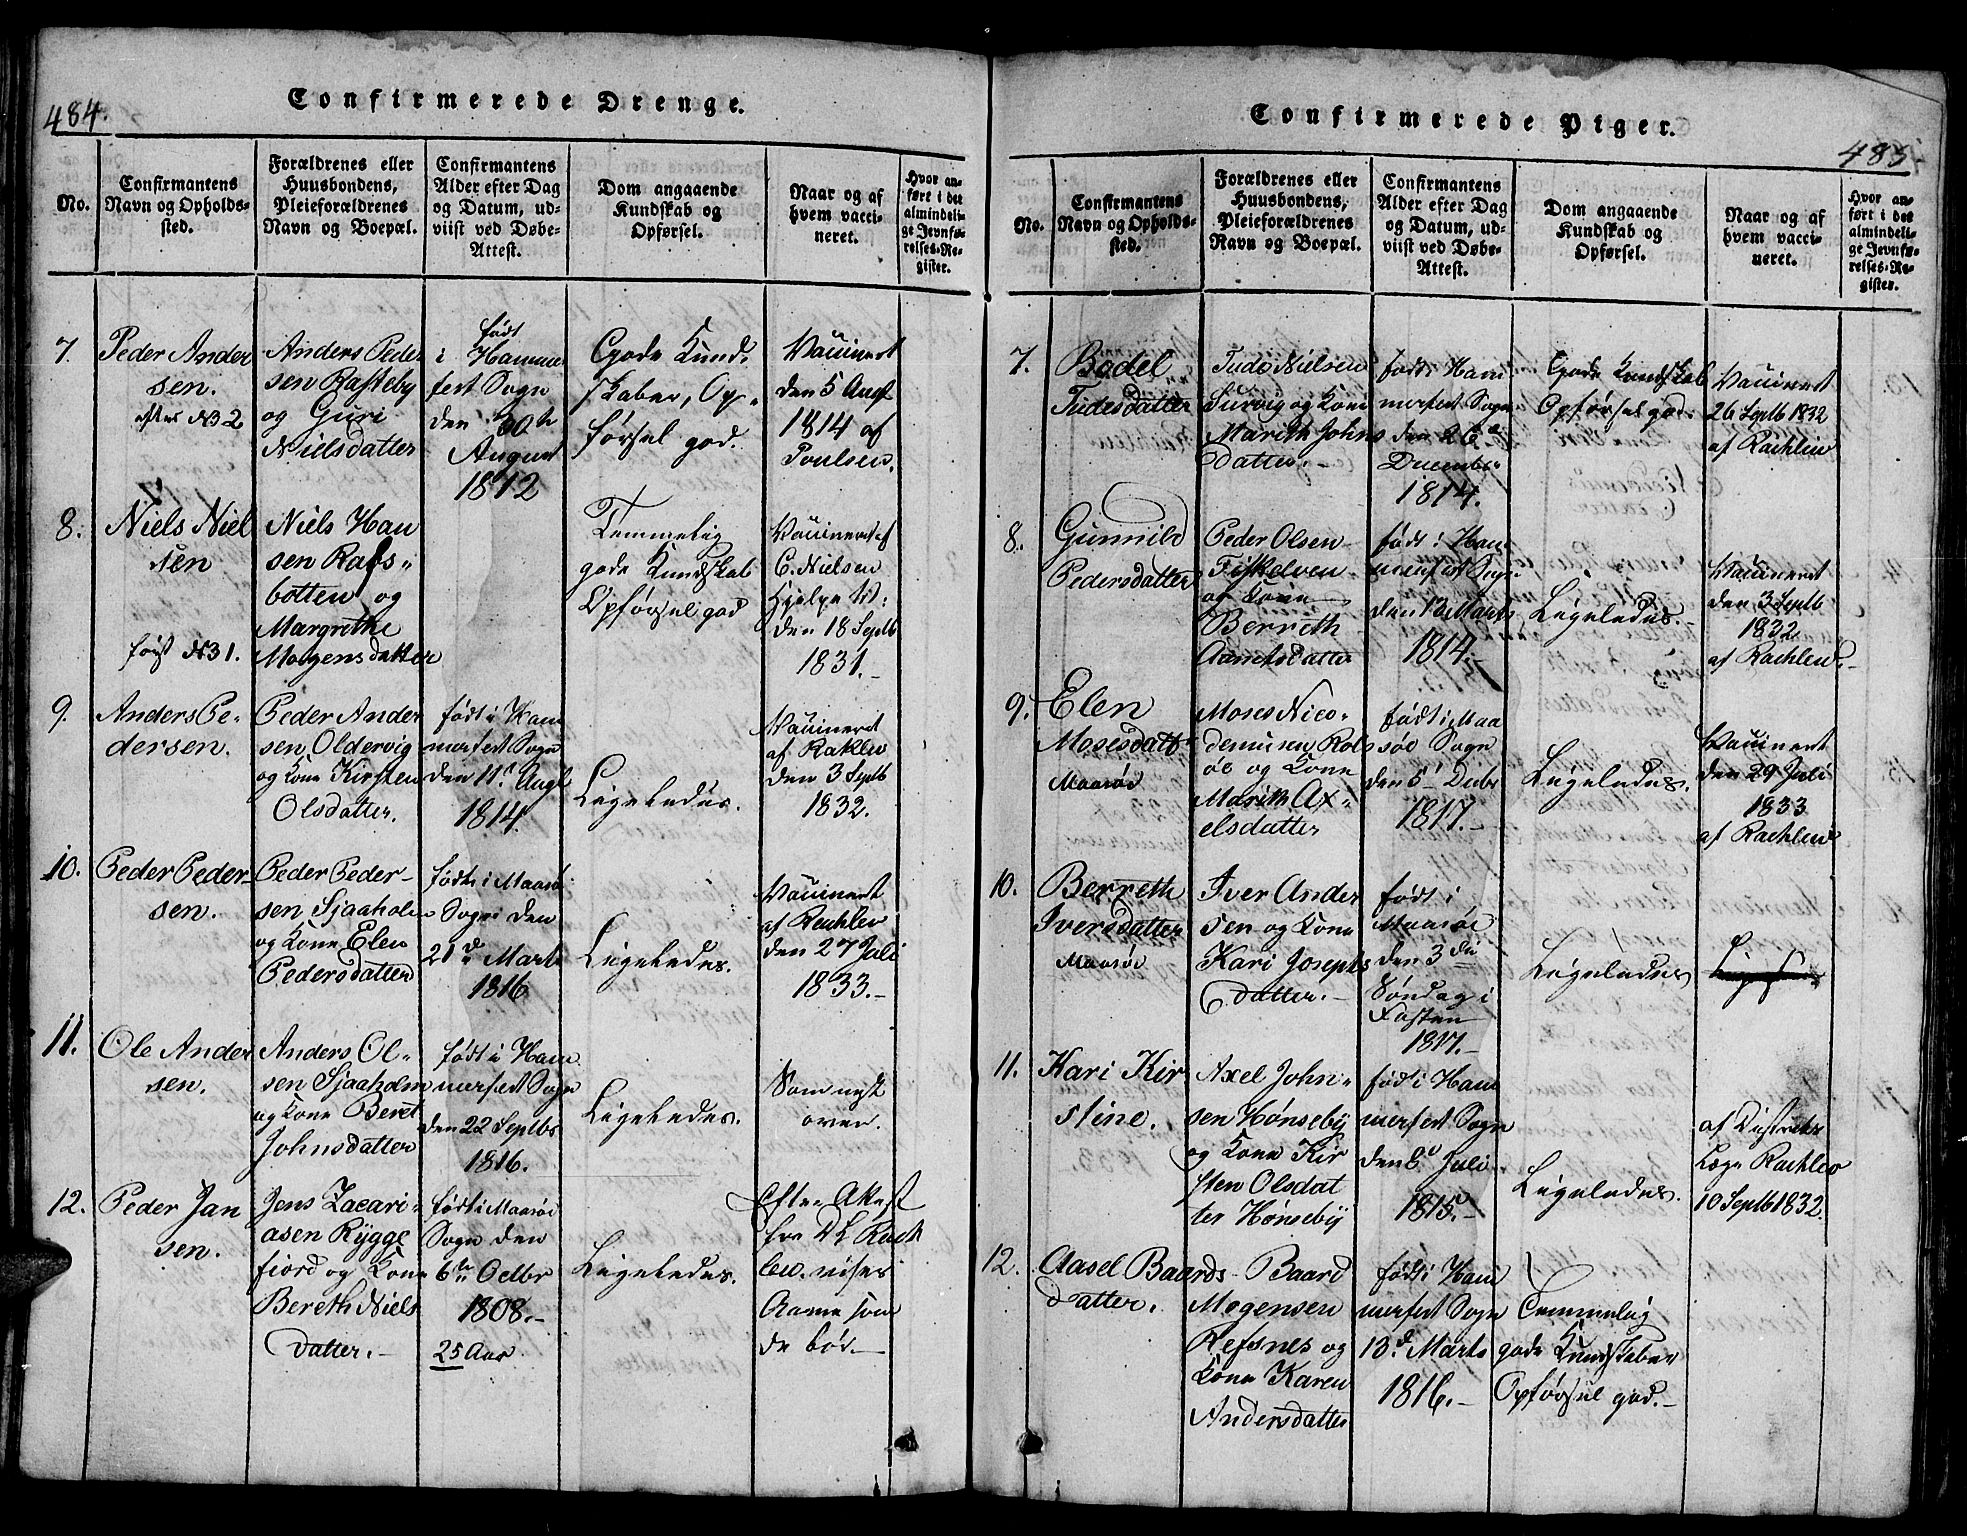 484.
Confirmerede Drenge.
No.
Confirmantens
Navn og Opholds-
sted.
Forældrenes eller
Huusbondens,
Pleieforældrenes
Navn og Boepæl.
Confirmantens
Alder efter Dag
og Datum, ud-
viist ved Døbe-
Attest.
Dom angaaende
Kundskab og
Opførsel.
Naar og af
hvem vacci-
neret.
Hvor an-
ført i det
almindeli-
ge Jevnfø-
relses-Re-
gister.
7.
Peder Ander
sen.
efter N32
Anders Peder
sen Rasteby
og Guri
Nielsdatter
født
i Hamme
fest Sogn
den 30te
August
1812
Gode Kund-
skaber, Op-
førsel god.
Vaccineret
den 5 Augt
1814 af
Poulsen.
8.
Niels Niel
sen
først N31.
Niels Han
sen Rafs-
botten og
Margrethe
Mogensdatter
Temmelig
gode Kundskab
Opførsel god
Vaccineret af
C. Nielsen
Hjelpe V:
den 18 Septb
1831.-
9.
Anders Pe-
dersen.
Peder Ander
sen Oldervig
og Kone Kirsten
Olsdatter.
født i Ham
merfest Sogn
den 11t Augt
1814.
Ligeledes.
Vaccineret
af Raklew
den 3 Septb
1832.
10.
Peder Peder-
sen.
Peder Peder-
sen Sjaaholm
og Kone Elen
Pedersdatter
født i Maasø
Sogn den
21de Marts
1816
Ligeledes.
Vaccineret
af Rachlew
den 27 Juli
1833.-
11.
Ole Ander
sen.
Anders Ol-
sen Sjaaholm
og Kone Beret
Johnsdatter
født i Ham
merfest Sogn
den 22 Septbr
1816.
Ligeledes.
Som nest
oven.
12.
Peder Jan
sen.
Jens Zacari-
asen Rygge
fiord og Kone
Bereth Niels
datter.-
født i Maasøe
Sogn den
6te Octbr
1808.-
25 Aar
Ligeledes.
Efter Atest
fra Dl Rach
lew. vises
Aarene som
de bør.-
Confirmerede Piger.
485
No.
Confirmantens
Navn og Opholds-
sted.
Forældrenes eller
Huusbondens,
Pleieforældrenes
Navn og Boepæl.
Confirmantens
Alder efter Dag
og Datum, ud-
viist ved Døbe-
Attest.
Dom angaaende
Kundskab og
Opførsel.
Naar og af
hvem vacci-
neret.
Hvor an-
ført i det
almindeli-
ge Jevnfø-
relses-Re-
gister.
7.
Bodel
Tudesdatter
Tude Nielsen
Survig og Kone
Marith Johns
datter.-
født i Ham
merfest Sogn
den 26de
December
1814.
Gode Kundskab
Opførsel god.
Vaccineret
26 Septb 1832
af Rachlew
8.
Gunnild
Pedersdatter
Peder Olsen
Fiskelven
og Kone
Berreth
Aamtsdatter
født i Ham
merfest Sogn
den 13 Marts
1814.-
Ligeledes.-
Vaccineret
den 3 Septb
1832
af Rachlew.-
9.
Elen
Mosesdatt
Maasøe
Moses Nico-
demusen Rols
øe og Kone
Marith Ax-
elsdatter
født i Maa
søe Sogn
den 5t Decbr
1817.-
Ligeledes.
Vaccineret
den 29 Juli
1833
af Rachlew
10.
Berreth
Iversdatter
Maasøe
Iver Ander
sen og Kone
Kari Josephs
datter.-
født i
Maasøe
den 3die
Søndag i
Fasten
1817.-
Ligeledes
11.
Kari Kir
stine.
Axel John-
sen Hønseby
og Kone Kir
sten Olsdat
ter Hønseby
født i Ham
merfest Sogn
Juli
1815.-
Ligeledes.
af Districts
Læge Rachlew
10 Septb 1832.
12.
Aasel Baards
datter.
Baard
Mogensen
Refsnes og
Kone Karen
Andersdatter
født i Ham
merfest Sogn
13d Marts
1816.-
Temmelig
gode Kundskaber
Opførsel god.-